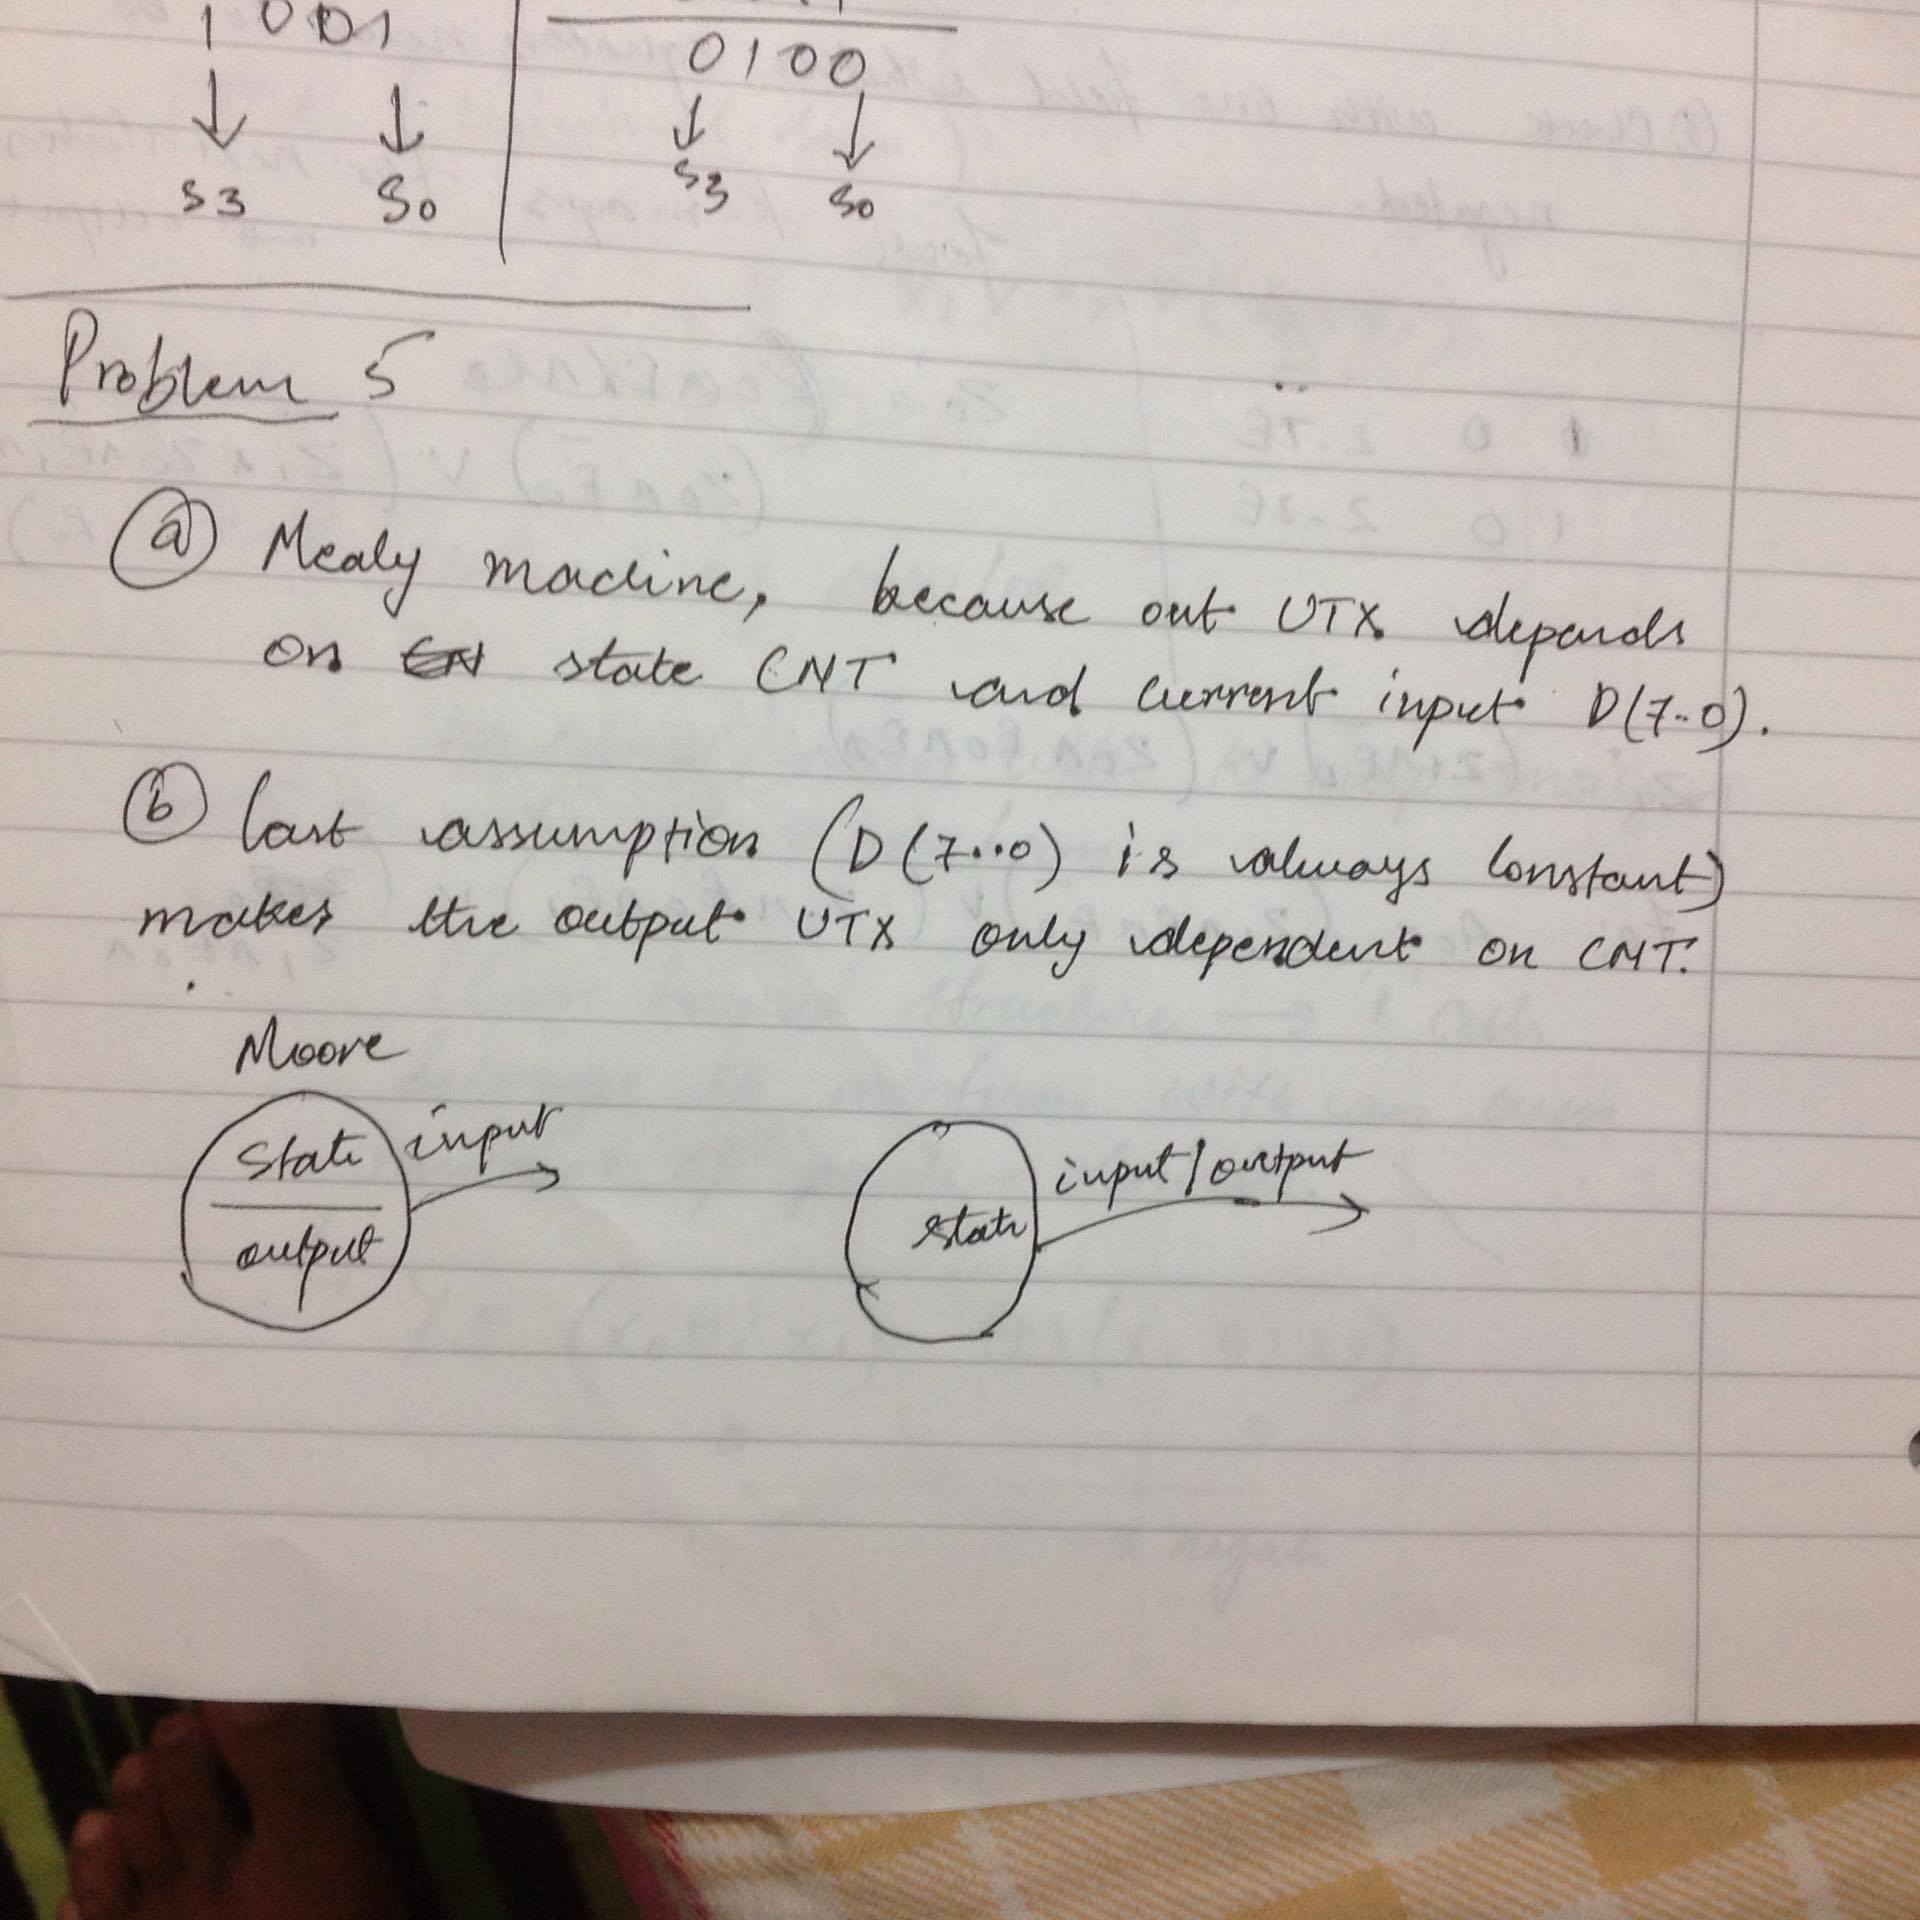 1001
0100
S3 S0 S3 S0
Problem 5
(a) Mealy macine, because out UTX depends
on state CNT and current input D(7..0).
(b) last assumption (D(7...0) is always constant)
makes the output UTX only dependent on CNT.
Moore
state input
output
state input/output